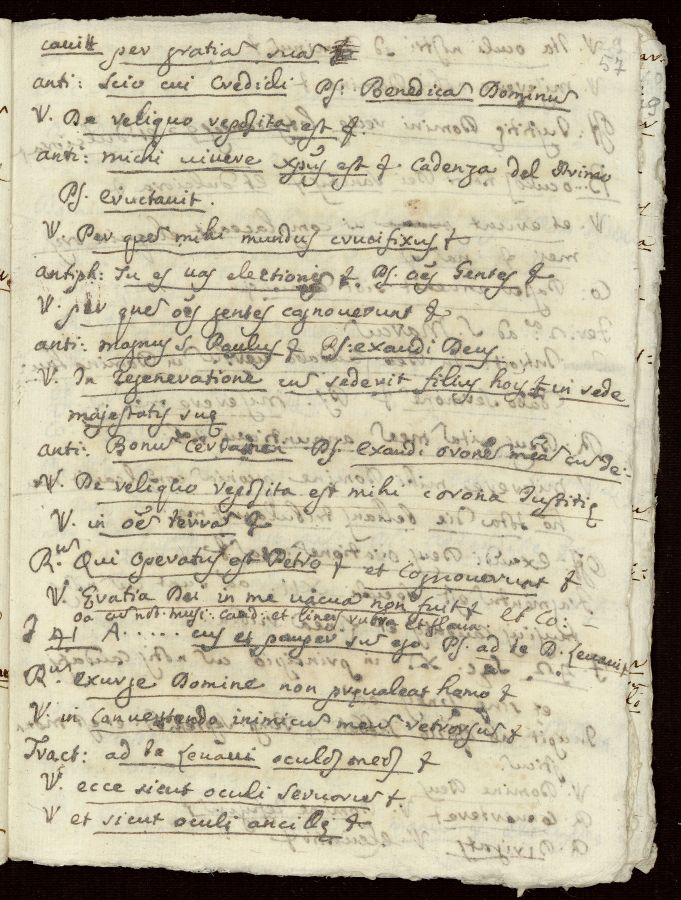 57
per gratia sua
anti: scio cui credidi Ps: Benedica Dominu
V. De reliquo reposita est
anti: mihi vivere xpus est cadenza del Primo
Ps. eructavit.
V. Per que mihi mundus crucifixus
antiph: Tu es vas electiones Ps. oes gentes
V. per que oes gentes cognoverunt
anti: magnus S. Paulus Ps: exaudi Deus
V. In regeneratione cu sederit filius hois in sede
majestatis suę
anti: Bonu certamen Ps. exaudi orone mea cu de.
V. De reliquo reposita est mihi corona Justitię
V. in oe terra
R. Qui operatus est Petro et cognoverunt
V. Gratia Dei in me vacua non fuit et Co:
cu not. musi: et linea rubra et flava
A..... cus et pauper su ego Ps. ad te D. levavi
R. exurge Domine non pręvaleat homo
V. in convertendo inimicu meu retrorsus
Tract: ad te levavi oculos meos
V. ecce sicut oculi servoru
V et sicut oculi ancillę